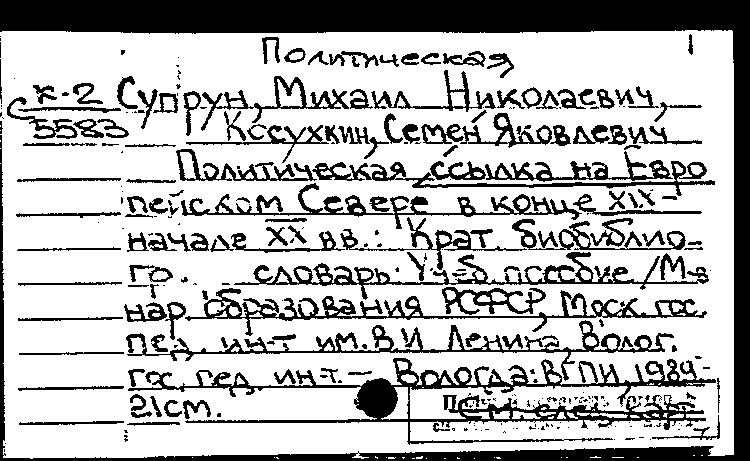 Политическая 1
К-2 Супрун, Михаил Николаевич,
5583 Косухкин, Семен Яковлевич
Политическая ссылка на Евро
пейском Севере в конце XIX-
начале XX вв.: Крат. биобиблио-
гр. словарь: Учеб. пособие / М-в
нар. образования РСФСР, Моск. гос.
пед. ин-т им. В.И Ленина, Волог.
гос. пед. ин-т. - Вологда: ВГПИ, 1989-
21см.
См. след. карт